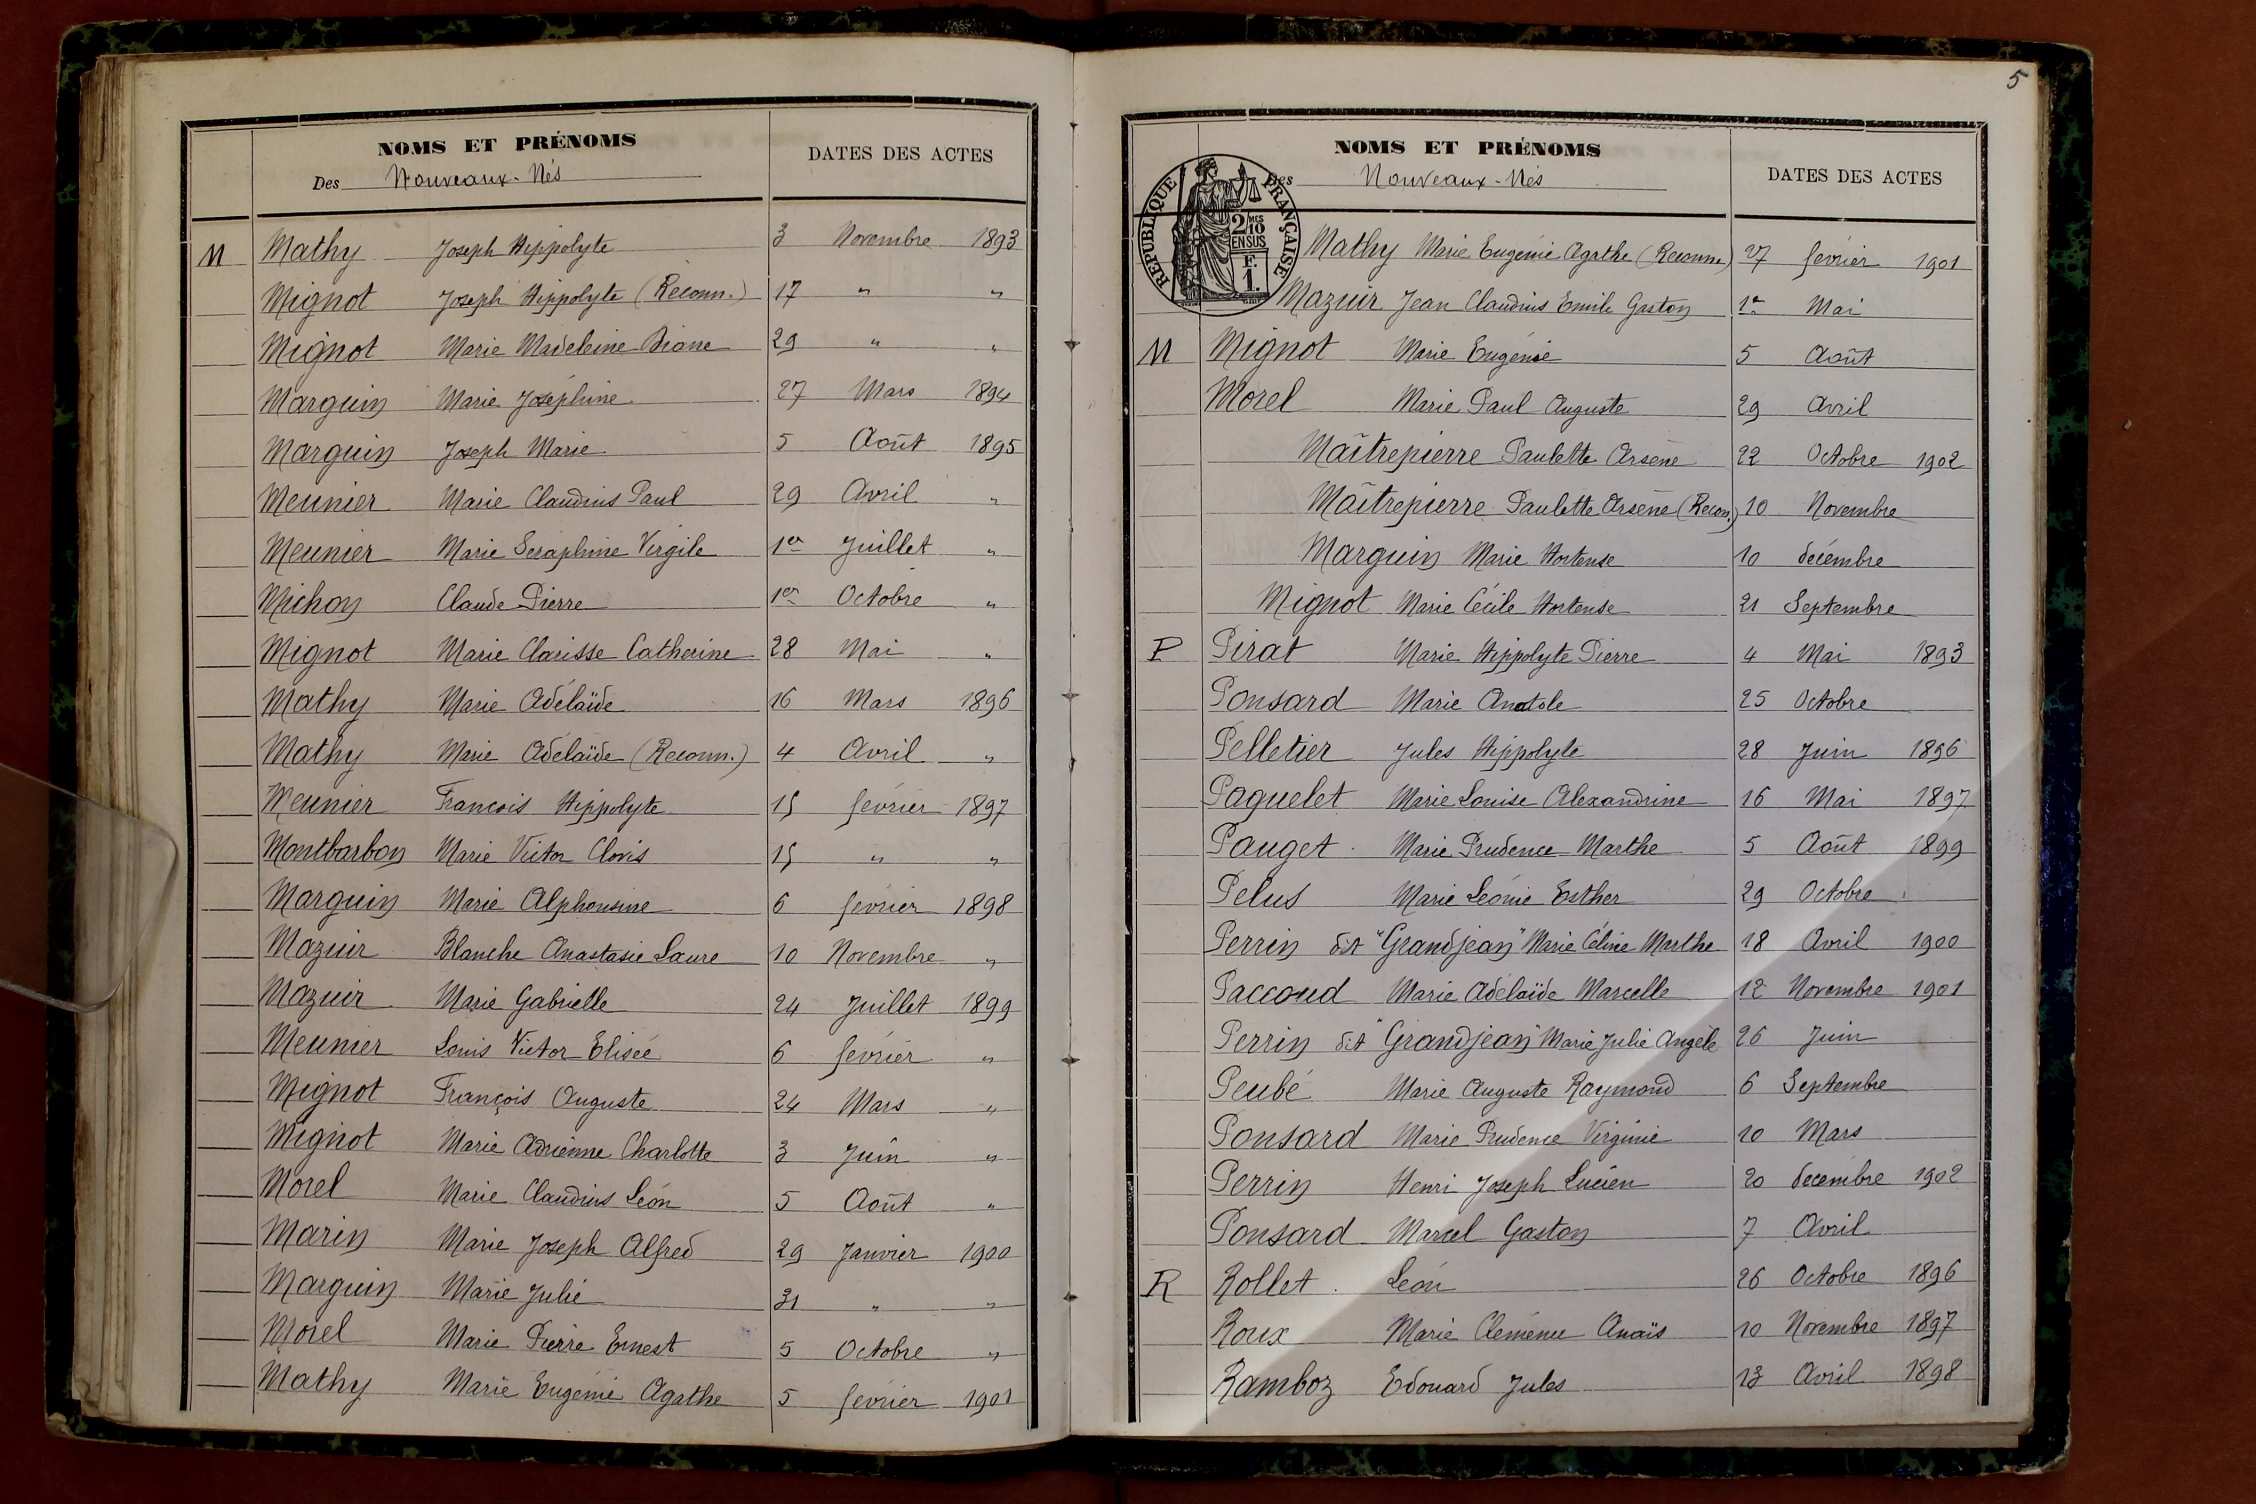 NOMS ET PRÉNOMS
DATES DES ACTES
Des Nouveaux-Nés
M Mathy Joseph Hippolyte 3 Novembre 1893
Mignot Joseph Hippolyte (Reconn.) 17 " "
Mignot Marie Madeleine Diane 29 " "
Marguin Marie Joséphine 27 Mars 1894
Marguin Joseph Marie 5 Août 1895
Meunier Marie Claudius Paul 29 Avril "
Meunier Marie Seraphine Virgile 1er Juillet "
Michon Claude Pierre 1er Octobre "
Mignot Marie Clarisse Catherine 28 Mai "
Mathy Marie Adélaïde 16 Mars 1896
Mathy Marie Adélaïde (Reconn.) 4 Avril "
Meunier François Hippolyte 15 février 1897
Montbarbon Marie Victor Clovis 15 " "
Marguin Marie Alphonsine 6 février 1898
Mazuir Blanche Anastasie Laure 10 Novembre "
Mazuir Marie Gabrielle 24 Juillet 1899
Meunier Louis Victor Elisée 6 février "
Mignot François Auguste 24 Mars "
Mignot Marie Adrienne Charlotte 3 Juin "
Morel Marie Claudius Léon 5 Août "
Marin Marie Joseph Alfred 29 Janvier 1900
Marguin Marie Julie 31 " "
Morel Marie Pierre Ernest 5 Octobre "
Mathy Marie Eugénie Agathe 5 février 1901
5
NOMS ET PRÉNOMS
DATES DES ACTES
Des Nouveaux-Nés
RÉPUBLIQUE FRANÇAISE
2/10 MES
EN SUS
F.
1.
Mathy Marie Eugénie Agathe (Reconn) 27 février 1901
Mazuir Jean Claudius Emile Gaston 1er Mai
M Mignot Marie Eugénie 5 Août
Morel Marie Paul Auguste 29 Avril
Maîtrepierre Paulette Arsène 22 Octobre 1902
Maîtrepierre Paulette Arsène (Recon.) 10 Novembre
Marguin Marie Hortense 10 décembre
Mignot Marie Cécile Hortense 21 Septembre
P Pirat Marie Hippolyte Pierre 4 Mai 1893
Ponsard Marie Anatole 25 Octobre
Pelletier Jules Hippolyte 28 Juin 1896
Paguelet Marie Louise Alexandrine 16 Mai 1897
Pauget Marie Prudence Marthe 5 Août 1899
Pelus Marie Léonie Esther 29 Octobre
Perrin dit "Grandjean" Marie Céline Marthe 18 Avril 1900
Paccoud Marie Adélaïde Marcelle 12 Novembre 1901
Perrin dit "Grandjean" Marie Julie Angèle 26 Juin
Peubé Marie Auguste Raymond 6 Septembre
Ponsard Marie Prudence Virginie 10 Mars
Perrin Henri Joseph Lucien 20 décembre 1902
Ponsard Marcel Gaston 7 Avril
R Rollet Léon 26 Octobre 1896
Roux Marie Clémence Anaïs 10 Novembre 1897
Ramboz Edouard Jules 13 Avril 1898